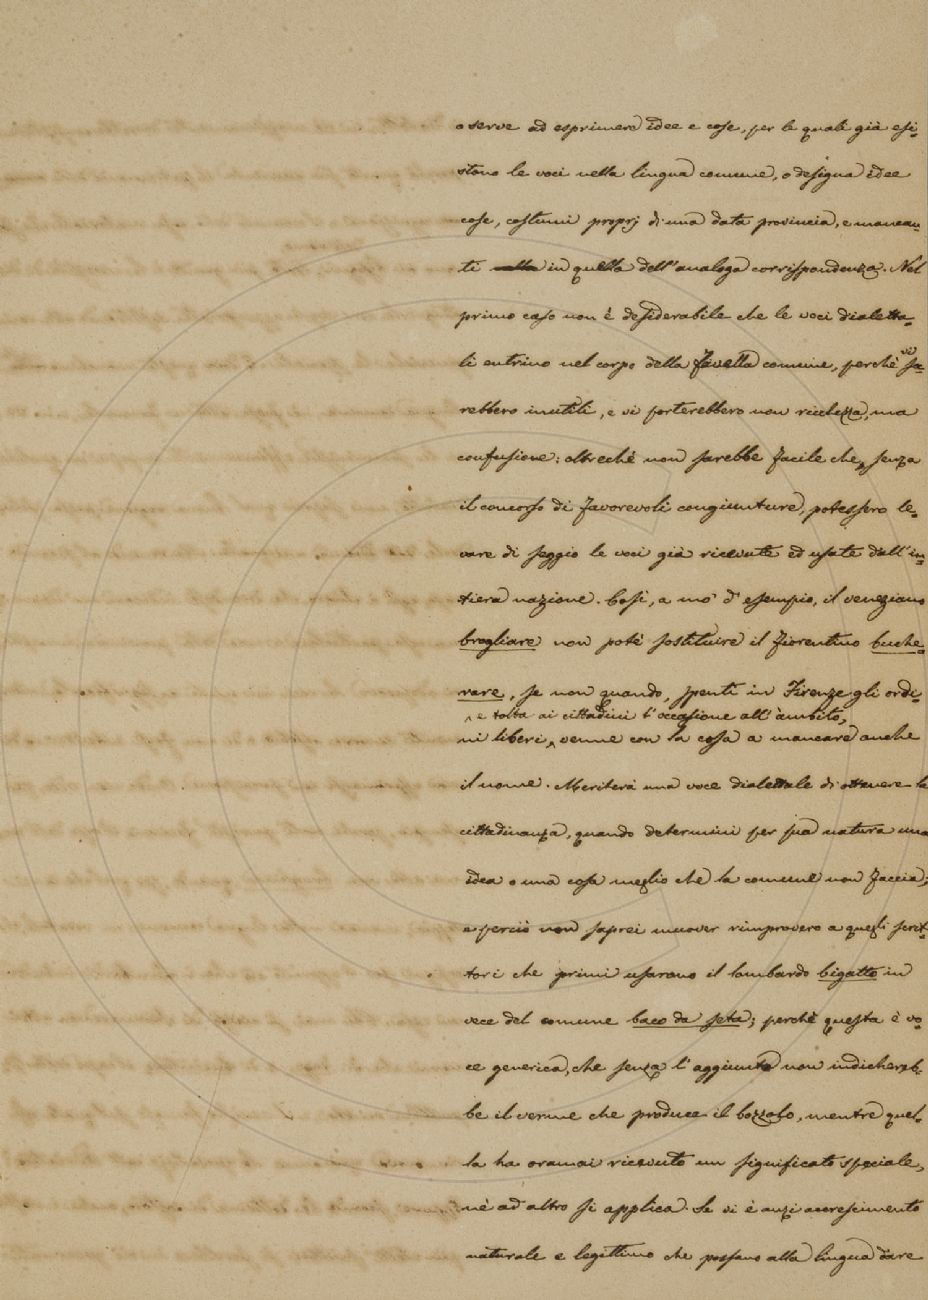 o serve ad esprimere idee e cose, per le quali già esi-
stono le voci nella lingua comune, o designa idee
cose, costumi proprj di una data provincia, e mancan-
ti in quella dell'analoga corrispondenza. Nel
primo caso non è desiderabile che le voci dialetta-
li entrino nel corpo della favella comune, perchè vi sa-
rebbero inutili, e vi porterebbero non ricchezza, ma
confusione: oltrechè non sarebbe facile che, senza
il concorso di favorevoli congiunture, potessero le-
vare di seggio le voci già ricevute ed usate dall'in-
tiera nazione. Così, a mo' d'esempio, il veneziano
brogliare non potè sostituire il fiorentino buche-
rare, se non quando, spenti in Firenze gli ordi-
e tolta ai cittadini l'occasione all'ambito,
ni liberi, venne con la cosa a mancare anche
il nome. Meriterà una voce dialettale di ottenere la
cittadinanza, quando determini per sua natura una
idea o una cosa meglio che la comune non faccia;
e perciò non saprei muover rimprovero a quegli scrit-
tori che primi usarono il lombardo bigatto in
vece del comune baco da seta; perchè questa è vo-
ce generica, che senza l'aggiunta non indichereb-
be il verme che produce il bozzolo, mentre quel-
la ha oramai ricevuto un significato speciale,
nè ad altro si applica. Se vi è anzi accrescimento
naturale e legittimo che possano alla lingua dare